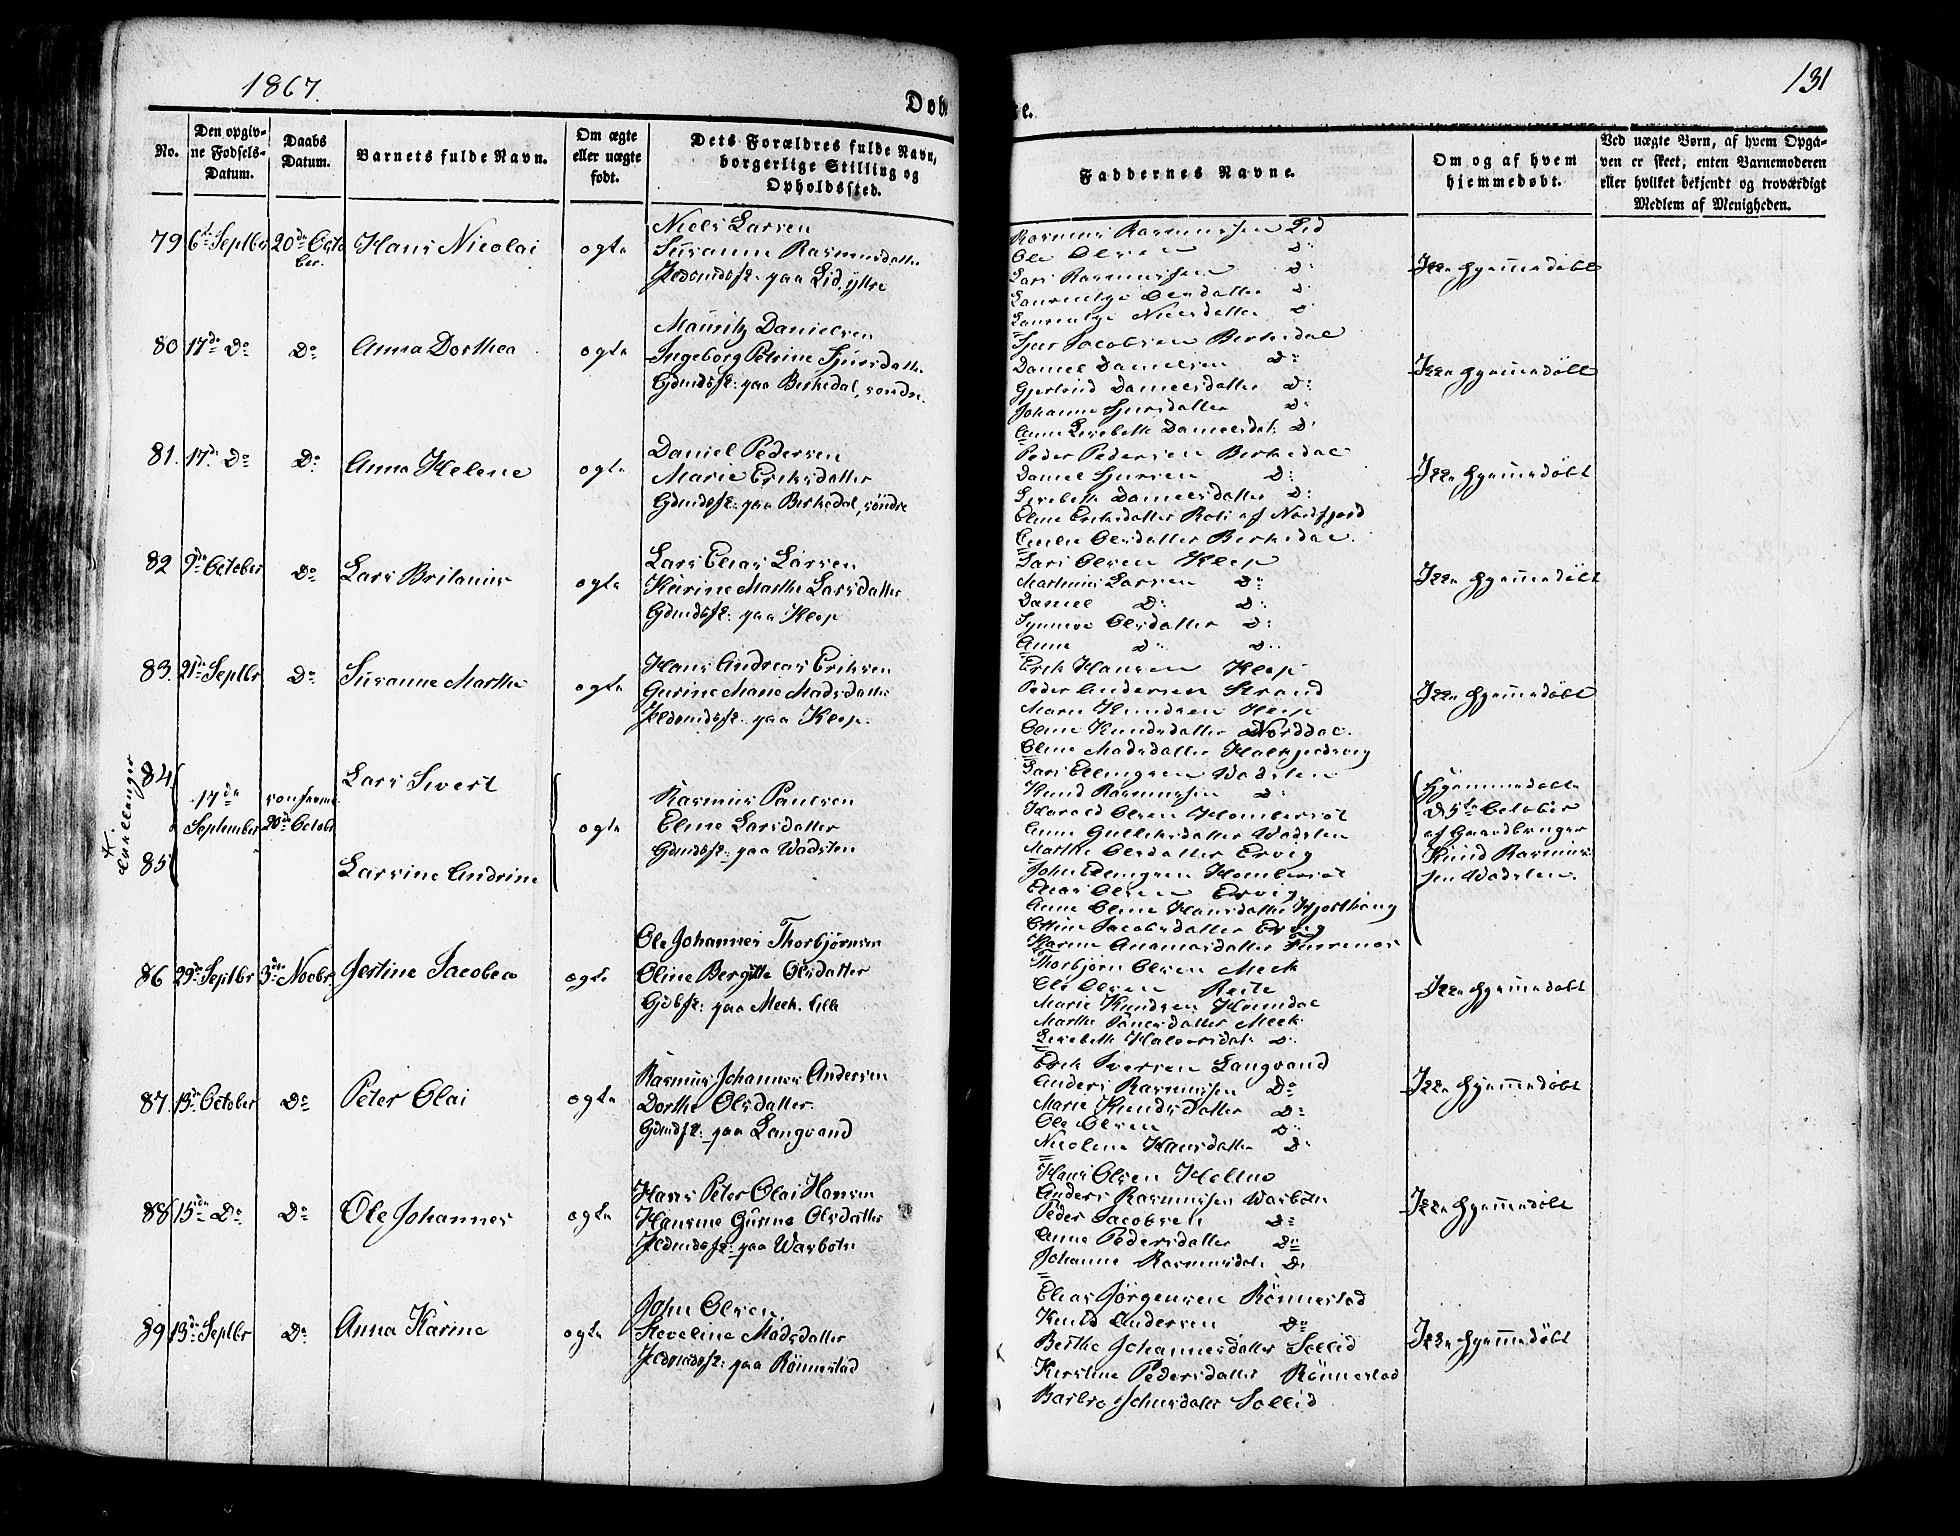 1867.
131
Døb
te.
No.
Den opgivne Fødsels-Datum.
Daabs Datum.
Barnets fulde Navn.
Om ægte eller uægte født.
Dets Forældres fulde Navn, borgerlige Stilling og Opholdssted.
Faddernes Navne.
Om og af hvem hjemmedøbt.
Ved uægte Børn, af hvem Opgaven er skeet, enten Barnemoderen eller hvilket bekjendt og troværdigt Medlem af Menigheden.
79 6te Septbr 20de October. Hans Nicolai ægte
Niels Larsen
Susanne Rasmusdatter
paa Lid, ytre
Rasmus Rasmussen Lid
Ole Olsen D:
Lars Rasmussen D:
Olsdatter D:
Nielsdatter D:
Ikke hjemmedøbt
80 17de Do Do Anna Dorthea ægte
Mauritz Danielsen
Ingeborg Petrine Sjursdatter
Gdmdsf: paa Birkedal, søndre.
Sjur Jacobsen Birkedal
Daniel Danielsen D:
Gjertrud Danielsdatter D:
Johanne Sjursdatter D:
Anne Lisebeth Danielsdat. D:
Ikke hjemmedøbt
81. 17de Do Do Anna Helene ægte
Daniel Pedersen
Marie Eriksdatter
Gdmdsf: paa Birkedal, søndre
Peder Pedersen Birkedal
Daniel Sjursen D:
Lisebeth Danielsdatter D:
Oline Eriksdatter af Nordfjord
Olsdatter Birkedal.
Ikke hjemmedøbt
82 9de October Do Lars Britanius ægte
Lars Elias Larsen
Karine Marthe Larsdatter
Gdmdsf: paa Kleep
Lars Olsen Kleep
Martinus Larsen D:
Daniel D: D:
Synneve Olsdatter D:
Anne D: D:
Ikke hjemmedøbt
83. 21de Septbr Do Susanne Marthe ægte
Hans Andreas Eriksen
Gurine Marie Madsdatter
paa Kleep.
Erik Hansen Kleep
Peder Andersen Strand
Marie Knudsen Kleep
Oline Knudsdatter Norddal
Oline Madsdatter
Ikke hjemmedøbt
84. Lars Sivert
17de September
20de Octobr
85. Larsine Andrine
ægte
Rasmus Paulsen
Eline Larsdatter
Gdmdsf: paa Wadsten
Lars Elingsen Wadsten
Knud Rasmussen D:
Harald Olsen
Anne Wadsten
Marthe Olsdatter Ervig
John Elingsen
Elias Olsen Ervig
Anne Oline Hansdatter
Jacobsdatter Ervig
Karine
Hjemmedøbte
D 5te October
af Gaardbruger
Knud Rasmus-
sen Wadsten.
86 29de Septbr 3die Novbr Jertine Jacobea ægte
Ole Johannes Thorbjørnsen
Oline Bergitte Olsdatter
Gdbsf: paa Meek. lille
Thorbjørn Olsen Meek
Ole Olsen Reite
Marie Knudsen
Marthe Meek.
Lisebeth Halvorsdat. D:
Ikke hjemmedøbt
87. 15de October Do Peter Olai ægte
Rasmus Johannes Andersen
Dorthe Olsdatter.
Gdmdsf: paa Langvand
Erik Iversen Langvand
Anders Rasmussen Do
Marie Knudsdatter D:
Ole Olsen D:
Nicoline Hansdatter D:
Ikke hjemmedøbt
88 15de Do Do Ole Johannes ægte
Hans Peter Olai Hansen
Hansine Gurine Olsdatter
paa Warbøtn
Hans Olsen
Anders Rasmussen Warbøtn
Peder Jacobsen D:
Anne Pedersdatter D:
Johanne Rasmusdat. D:
Ikke hjemmedøbt
89 13de Septbr Do Anna Karine ægte
John Olsen
Severine Madsdatter
paa Rönnestad
Elias Jørgensen Rönnestad
Knud Andersen Do
Berthe Johannesdatter Sollid
Kirstine Pedersdatter Rönnestad
Barbro Johnsdatter Sollid
Ikke hjemmedøbt